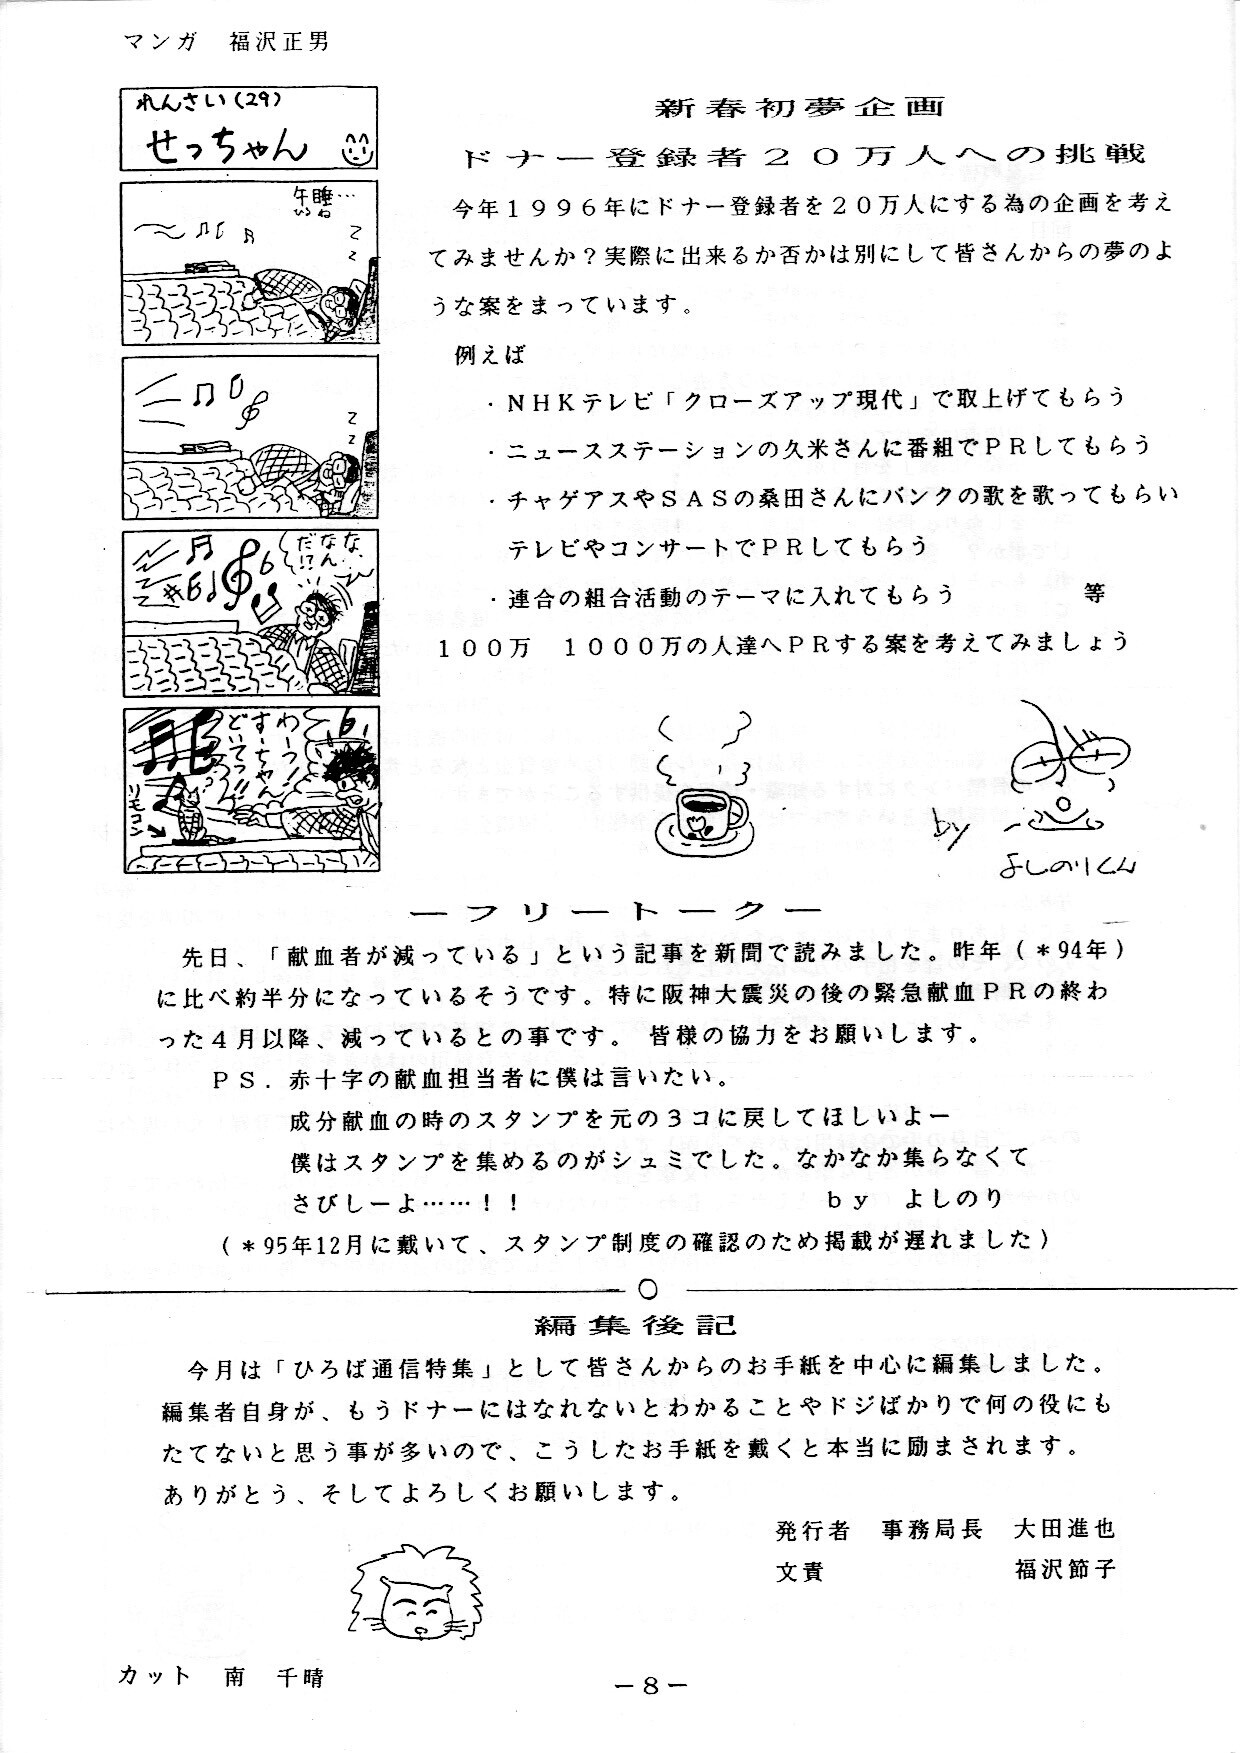 マンガ　福沢正男
れんさい(29)
せっちゃん
午睡…
ひるね
z
z
z
z
な、
なな
なん
だ!?
わーっ!!
すーちゃん
どいてっ!!
リモコン
新春初夢企画
ドナー登録者２０万人への挑戦
今年１９９６年にドナー登録者を２０万人にする為の企画を考え
てみませんか？実際に出来るか否かは別にして皆さんからの夢のよ
うな案をまっています。
例えば
・ＮＨＫテレビ「クローズアップ現代」で取上げてもらう
・ニュースステーションの久米さんに番組でＰＲしてもらう
・チャゲアスやＳＡＳの桑田さんにバンクの歌を歌ってもらい
テレビやコンサートでＰＲしてもらう
・連合の組合活動のテーマに入れてもらう　　　　　等
１００万　１０００万の人達へＰＲする案を考えてみましょう
by
よしのりくん
ーフリートークー
先日、「献血者が減っている」という記事を新聞で読みました。昨年（＊94年）
に比べ約半分になっているそうです。特に阪神大震災の後の緊急献血ＰＲの終わ
った４月以降、減っているとの事です。　皆様の協力をお願いします。
ＰＳ．赤十字の献血担当者に僕は言いたい。
成分献血の時のスタンプを元の３コに戻してほしいよー
僕はスタンプを集めるのがシュミでした。なかなか集らなくて
さびしーよ……！！　　　　　　ｂｙ　よしのり
（＊95年12月に戴いて、スタンプ制度の確認のため掲載が遅れました）
編集後記
今月は「ひろば通信特集」として皆さんからのお手紙を中心に編集しました。
編集者自身が、もうドナーにはなれないとわかることやドジばかりで何の役にも
たてないと思う事が多いので、こうしたお手紙を戴くと本当に励まされます。
ありがとう、そしてよろしくお願いします。
発行者　事務局長　大田進也
文責　　　　　　　福沢節子
カット　南　千晴
－８－